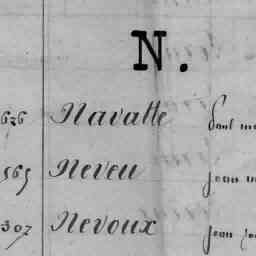 N.
626 Navatte Paul
565 Neveu Jean
307 Nevoux Jean